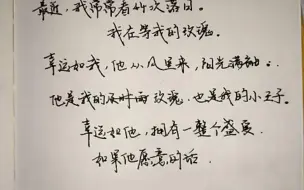 最近，我常常看43次落日。
我在等我的玫瑰。
幸运如我，他从风里来，阳光满袖。
他是我的及时雨玫瑰，也是我的小王子。
幸运如他，拥有一整个盛夏，
如果他愿意的话。